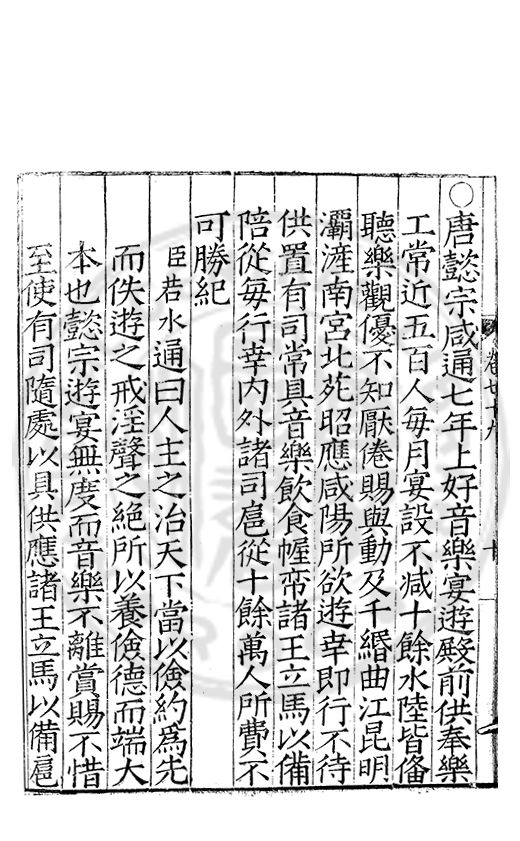 ○唐懿宗咸通七年上好音樂宴遊殿前供奉樂
工常近五百人每月宴設不减十餘水陸皆俻
聽樂觀優不知厭倦賜與動及千緡曲江昆明
灞滻南宮北苑昭應咸陽所欲遊幸即行不待
供置有司常具音樂飲食幄帟諸王立馬以備
陪從每行幸内外諸司扈從十餘萬人所費不
可勝紀
臣若水通曰人主之治天下當以儉約爲先
而佚遊之戒淫聲之絶所以養儉德而端大
本也懿宗遊宴無度而音樂不離賞賜不惜
至使有司隨處以具供應諸王立馬以備扈